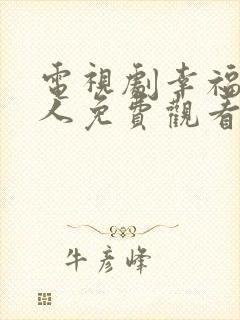 電視劇幸福
人免費觀看
牛彥峰